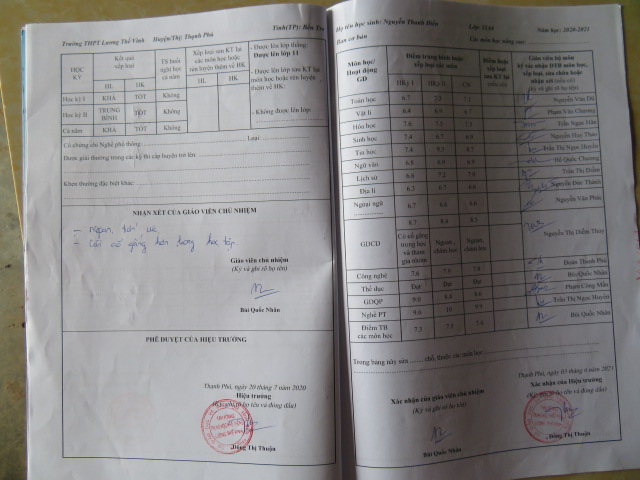 Trường THPT Lương Thế Vinh Huyện/Thị: Thạnh Phú Tỉnh(TP): Bến Tre
HỌC KỲ
Kết quả xếp loại
HL HK
TS buổi nghỉ học cả năm
Xếp loại sau KT lại các môn học hoặc rèn luyện thêm về HK
HL HK
- Được lên lớp thẳng:
Được lên lớp 11
- Được lên lớp sau KT lại môn học hoặc rèn luyện thêm về HK:
- Không được lên lớp:
Học kỳ I KHÁ TỐT Không
Học kỳ II TRUNG BÌNH TỐT Không
Cả năm KHÁ TỐT Không
Có chứng chỉ Nghề phổ thông: Loại:
Được giải thưởng trong các kỳ thi cấp huyện trở lên:
Khen thưởng đặc biệt khác:
NHẬN XÉT CỦA GIÁO VIÊN CHỦ NHIỆM
- Ngoan,
- Cần cố gắng hơn trong học tập.
Giáo viên chủ nhiệm
(Ký và ghi rõ họ tên)
Bùi Quốc Nhân
PHÊ DUYỆT CỦA HIỆU TRƯỞNG
Thạnh Phú, ngày 20 tháng 7 năm 2020
Hiệu trưởng
(Ký, ghi rõ họ tên và đóng dấu)
Đồng Thị Thuận
Họ tên học sinh: Nguyễn Thanh Điền Lớp: Năm học: 2020-2021
Ban cơ bản Các môn nâng cao:
Môn học/ Hoạt động GD
Điểm trung bình hoặc xếp loại các môn
HKỳ I HKỳ II CN
Giáo viên bộ môn ký xác nhận ĐTB môn học, xếp loại, sửa chữa hoặc nhận xét
(Ký và ghi rõ họ tên)
Toán học 6.7 7.3 7.1 Nguyễn Văn Đủ
Vật lí 6.4 6.9 6.7 Phạm Văn Chương
Hóa học Trần Ngọc Hân
Sinh học 7.4 6.7 6.9 Nguyễn Học Thảo
Tin học 7.8 Trần Thị Ngọc Huyền
Ngữ văn 6.8 6.9 6.9 Hồ Quốc Chương
Lịch sử 6.6 7.2 7.0 Trần Thị Diễm
Địa lí 6.3 6.7 6.6 Nguyễn Đức Thành
Ngoại ngữ 6.7 6.6 6.6 Nguyễn Văn Phúc
GDCD 8.7 8.4 8.5 Nguyễn Thị Diễm Thúy
Có cố gắng trong học và tham gia nhóm
Ngoan, chăm học
Ngoan, chăm học
Công nghệ 7.6 7.9 7.8 Đoàn Thanh Phú
Thể dục Đạt Đạt Đạt Bùi Quốc Nhân
GDQP 9.0 8.4 8.6 Phạm Công Mẫn
Nghề PT 9.6 10 9.9 Trần Thị Ngọc Huyền
Điểm TB các môn học 7.3 7.5 7.4 Bùi Quốc Nhân
Trong bảng này sửa chỗ, thuộc các môn học
Thạnh Phú, ngày 03 tháng 6 năm 2021
Xác nhận của giáo viên chủ nhiệm
(Ký và ghi rõ họ tên)
Bùi Quốc Nhân
Xác nhận của Hiệu trưởng
(Ký, ghi rõ họ tên và đóng dấu)
Đồng Thị Thuận